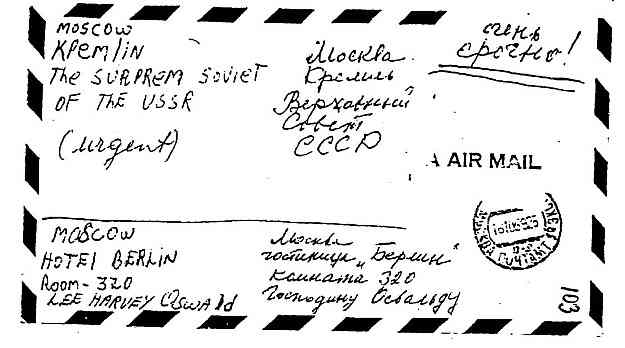 MOSCOW
КРЕМlin
The SURPREM SOVIET
OF THE USSR
(urgent)
Москва
Кремль
Верховный
Совет
СССР
очень
срочно!
AIR MAIL
MOSCOW
HOTEl BERLIN
Room - 320
LEE HARVEY OSWAld
Москва
гостиница „Берлин“
комната 320
Господину Освальду
ПОЧТАМТ
103